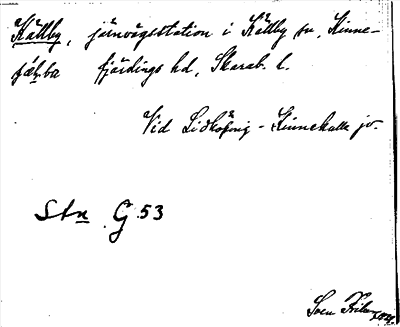 Källby, järnvägsstation i Källby sn, Kinne-
fjärdings hd, Skarab. l.
Vid Lidköping - Kinnekulle jv.
Stn G 53
Sven